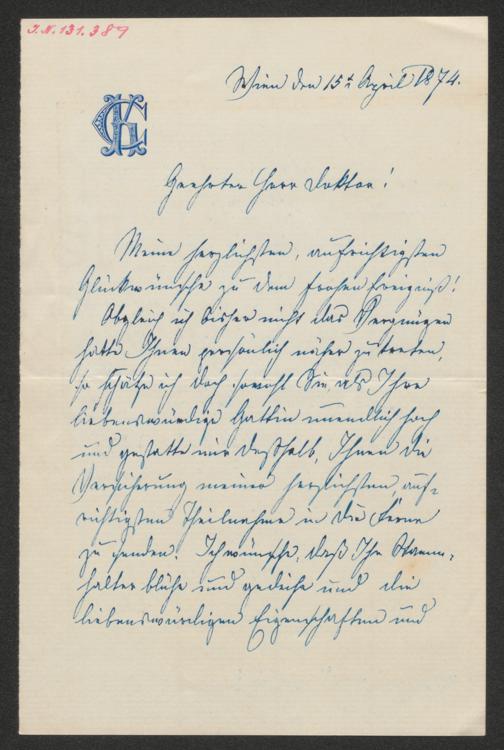 J.N. 131.389
Wien den 15t April 1874.
CK
Geehrter Herr Doktor!
Meine herzlichsten, aufrichtigsten
Glückwünsche zu dem frohen Ereigniß!
Obgleich ich bisher nicht das Vergnügen
hatte Ihnen persönlich näher zu treten,
so schätze ich doch sowohl Sie als Ihre
liebenswürdige Gattin unendlich hoch
und gestatte mir deßhalb, Ihnen die
Versicherung meiner herzlichsten, auf-
richtigsten Theilnahme in die Ferne
zu senden. Ich wünsche, daß Ihr Stamm-
halter blühe und gedeihe und die
liebenswürdigen Eigenschaften und